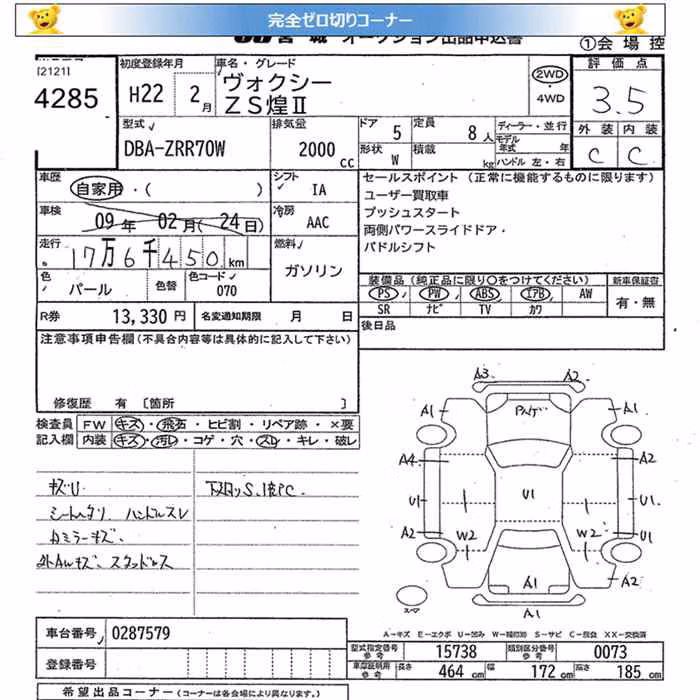 完全ゼロ切りコーナー
宮城 オークション出品申込書
①会場控
[2121]
4285
初度登録年月
H22 2月
車名・グレード
ヴォクシー
ZS煌Ⅱ
2WD
・4WD
評価点
3.5
外装 内装
C C
型式
DBA-ZRR70W
排気量
2000 cc
ドア 5
定員 8人
形状 W
積載 kg
ディーラー・並行
モデル年式 年
ハンドル 左・右
車歴
自家用・( )
シフト
IA
車検
09年 02月(24日)
冷房
AAC
走行
17万6千450km
燃料
ガソリン
色
パール
色替
色コード
070
セールスポイント(正常に機能するものに限ります)
ユーザー買取車
プッシュスタート
両側パワースライドドア・
パドルシフト
装備品(純正品に限り○をつけてください)
新車保証書
PS PW ABS エアB AW
SR ナビ TV カワ
有・無
R券 13,330円
名変通知期限 月 日
後日品
注意事項申告欄(不具合内容等は具体的に記入して下さい)
修復歴 有 [箇所 ]
検査員記入欄
FW キズ・飛石・ヒビ割・リペア跡・×要
内装 キズ・汚レ・コゲ・穴・スレ・キレ・破レ
キズU
シートヘタリ ハンドルスレ
カミラーキズ
外AWキズ、スタッドレス
下スロッS.1皮PC.
A3 A2
A1 A1
A4 A2
U1 U1 U1
A2 U1
W2 W2
A1 A2
A1
スペア
A-キズ E-エクボ U-凹み W-補修跡 S-サビ C-腐食 XX-交換済
車台番号 0287579
登録番号
型式指定番号 参考 15738
類別区分番号 参考 0073
車庫証明用 参考 長さ 464cm 幅 172cm 高さ 185cm
希望出品コーナー(コーナーは各会場により異なります。)